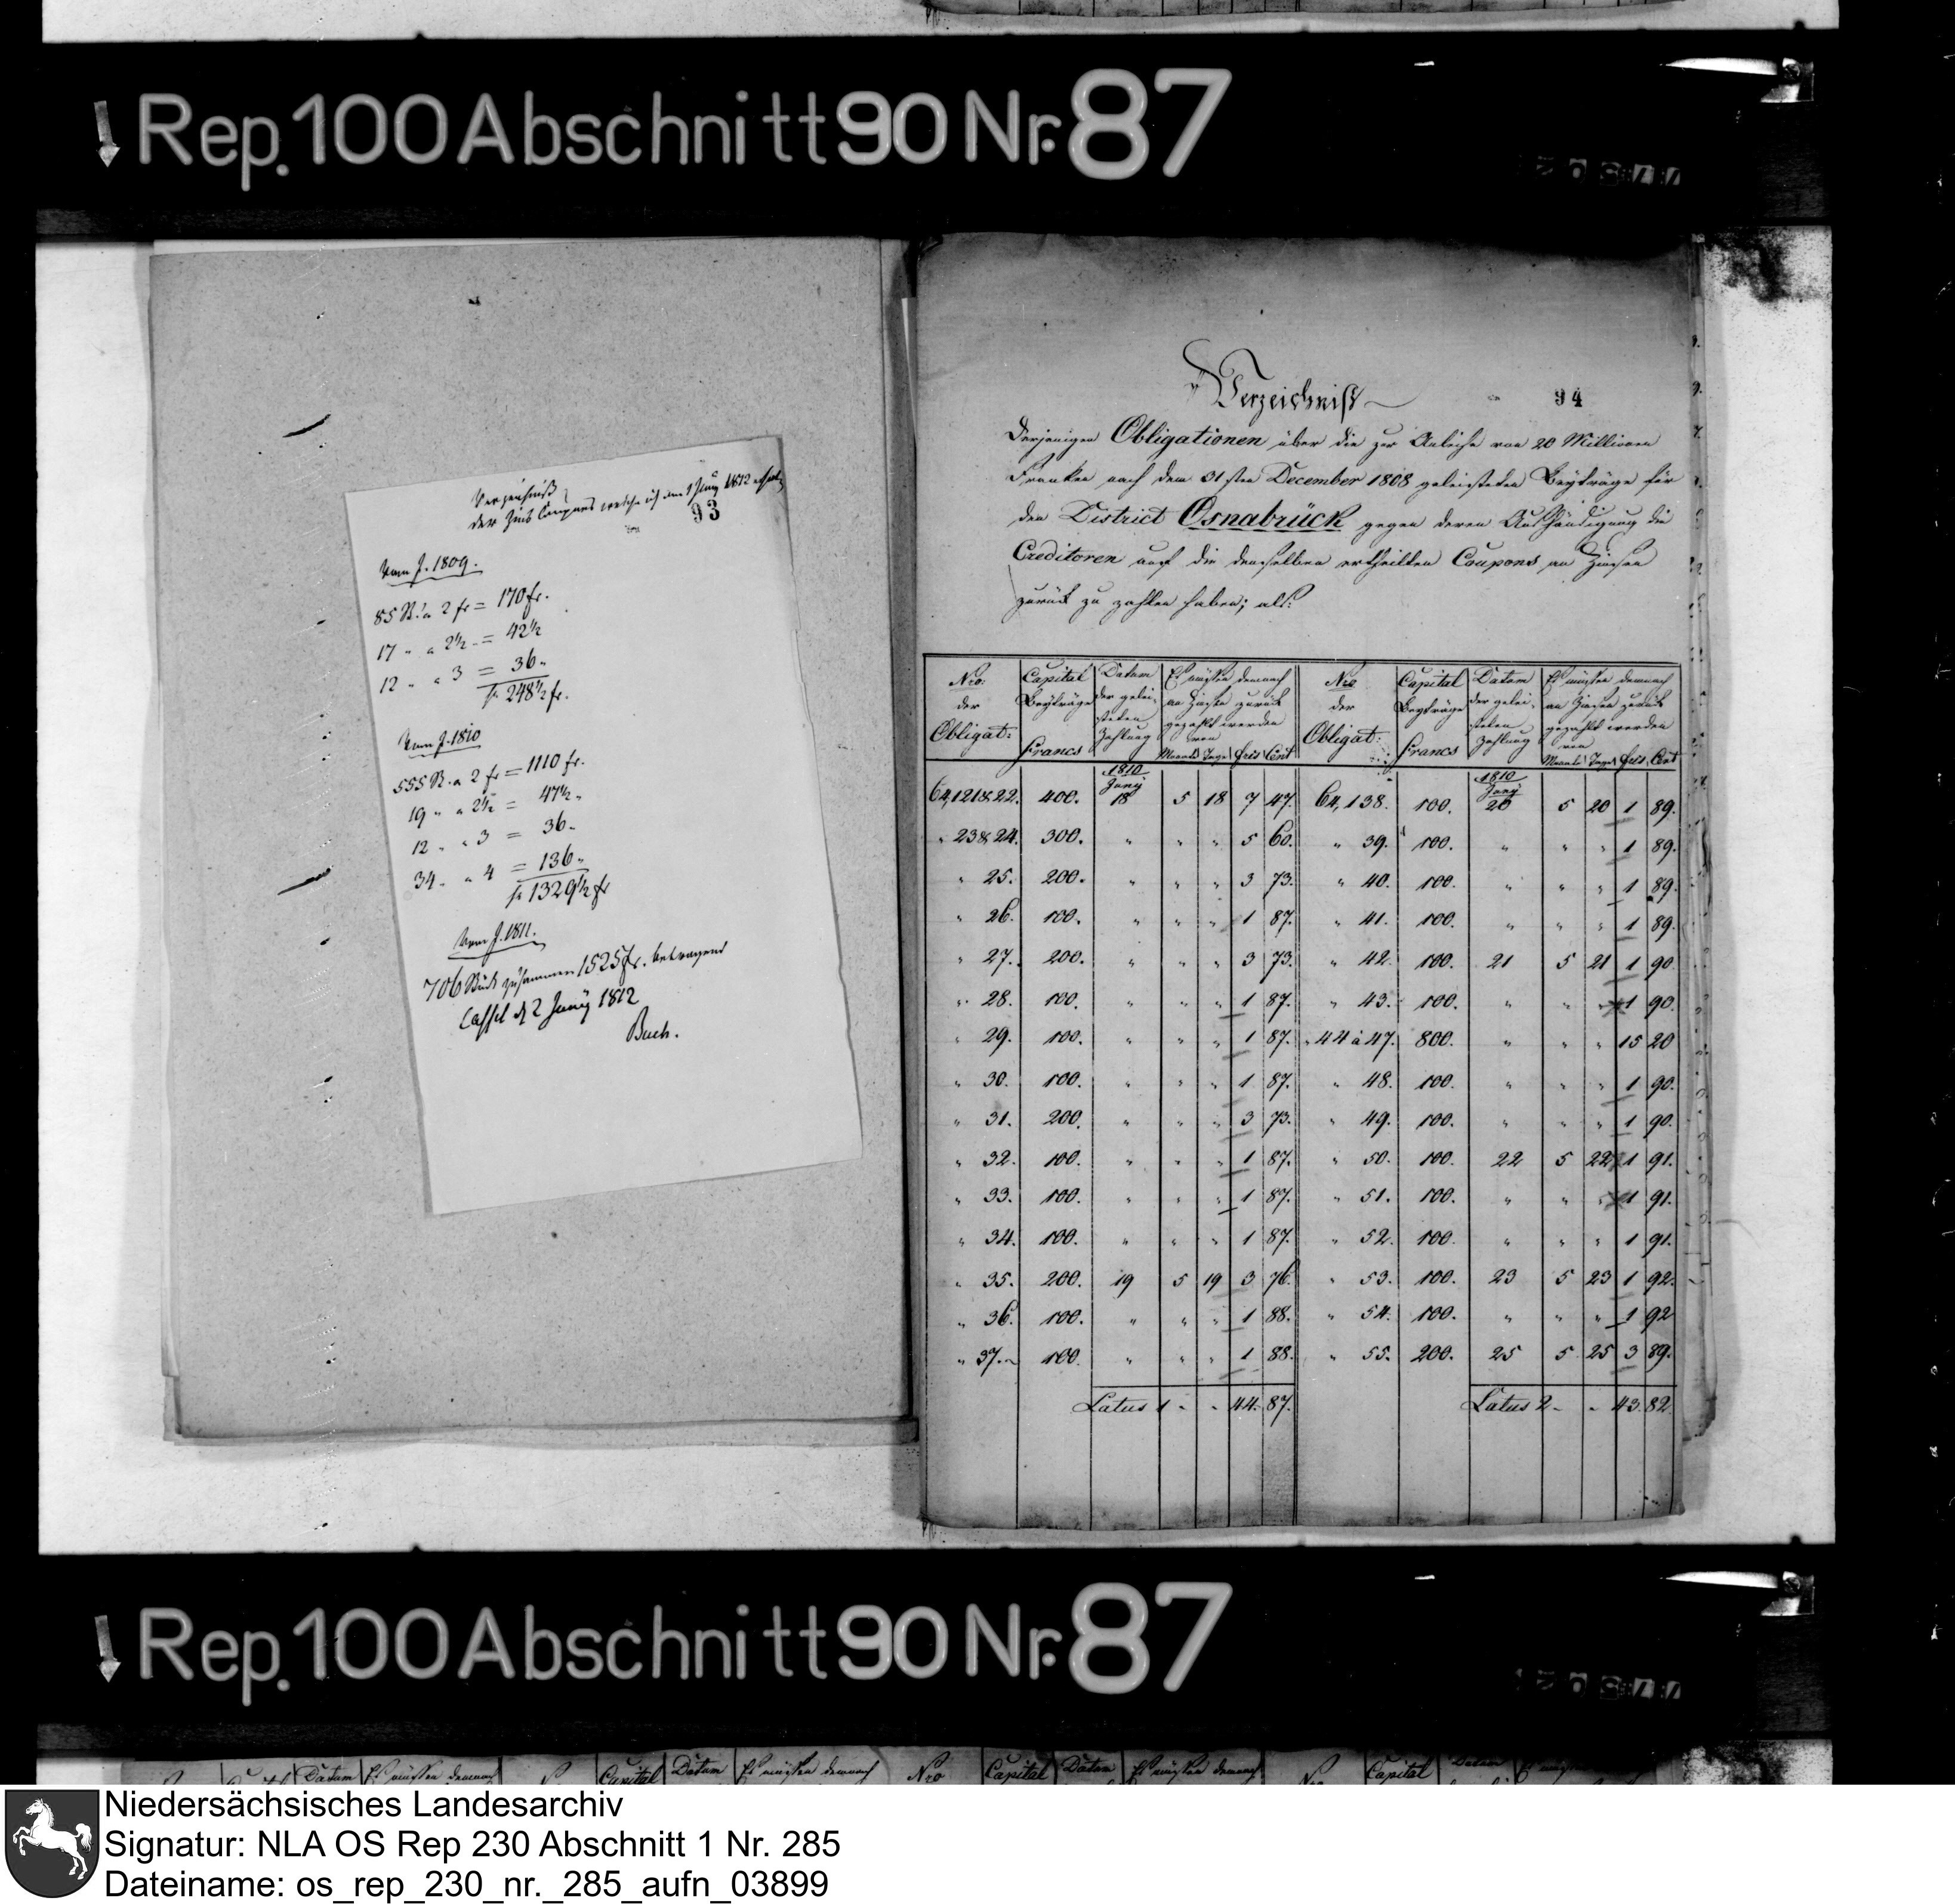 Rep. 100 Abschnitt 90 Nr. 87
Verzeichniß
der Zins Coupons welche ich am 1 Juny 1812 erhalten
93
Vom J. 1809.
85 St. a 2 fr = 170 fr.
17 " " 2½ - = 42½
12 " " 3 = 36 "
S. 248½ fr.
Vom J. 1810
555 St. a 2 fr = 1110 fr.
19 " " 2½ = 47½ "
12 " " 3 = 36 "
34 " " 4 = 136 "
S. 1329½ fr
Vom J. 1811.
706 Stück zusammen 1525 fr. betragend
Cassel d 2 Juny 1812
Buch.
Verzeichniß
94
Derjenigen Obligationen über die zur Anleihe von 20 Millionen
Franken nach dem 31sten December 1808 geleisteten Beyträge für
den District Osnabrück gegen deren Aushändigung die
Creditoren auf die denselben ertheilten Coupons an Zinsen
zurück zu zahlen haben; als:
Nro. der Obligat: Capital Beyträge Francs Datum der geleisteten Zahlung Es müßen demnach an Zinsen zurück gezahlt werden von Monate Tage frcs Cent Nro der Obligat: Capital Beyträge Francs Datum der geleisteten Zahlung Es müßen demnach an Zinsen zurück gezahlt werden von Monate Tage frcs Cent
1810 Juny 1810 Juny
64,121 & 22. 400. 18 5 18 7 47. 64,138. 100. 20 5 20 1 89.
" 23 & 24. 300. " " " 5 60. " 39. 100. " " " 1 89.
" 25. 200. " " " 3 73. " 40. 100. " " " 1 89.
" 26. 100. " " " 1 87. " 41. 100. " " " 1 89.
" 27. 200. " " " 3 73. " 42. 100. 21 5 21 1 90.
" 28. 100. " " " 1 87. " 43. 100. " " " 1 90.
" 29. 100. " " " 1 87. " 44 à 47. 800. " " " 15 20
" 30. 100. " " " 1 87. " 48. 100. " " " 1 90.
" 31. 200. " " " 3 73. " 49. 100. " " " 1 90.
" 32. 100. " " " 1 87. " 50. 100. 22 5 22 1 91.
" 33. 100. " " " 1 87. " 51. 100. " " " 1 91.
" 34. 100. " " " 1 87. " 52. 100. " " " 1 91.
" 35. 200. 19 5 19 3 76. " 53. 100. 23 5 23 1 92.
" 36. 100. " " " 1 88. " 54. 100. " " " 1 92
" 37. 100. " " " 1 88. " 55. 200. 25 5 25 3 89.
Latus 1 - - 44. 87. Latus 2 - - 43. 82.
Rep. 100 Abschnitt 90 Nr. 87
Capital Datum Es müßen demnach Nro Capital Datum Es müßen demnach Nro Capital Datum
Niedersächsisches Landesarchiv
Signatur: NLA OS Rep 230 Abschnitt 1 Nr. 285
Dateiname: os_rep_230_nr._285_aufn_03899